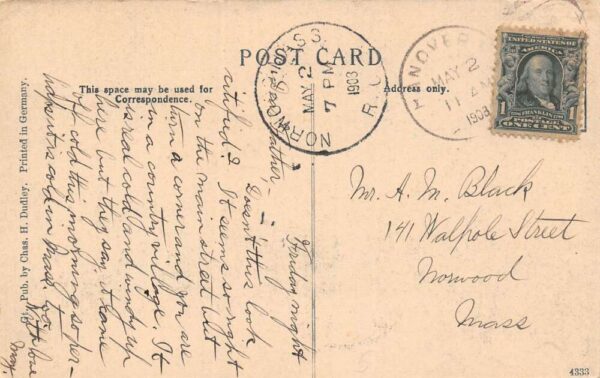 POST CARD
This space may be used for
Correspondence.
Address only.
Pub. by Chas. H. Dudley. Printed in Germany.
NORWOOD, MASS.
MAY 2
7 PM
1908
REC'D.
HANOVER
MAY 2
11 AM
1908
UNITED STATES OF
AMERICA
1
FRANKLIN
POSTAGE
ONE CENT
Friday night
Dear Father,—
Doesn't this look
citified? It seems so right
on the main street but
turn a corner and you are
in a country village. It
is real cold and windy up
here but they say it came
off cold this morning so per-
haps it is cold in Mass. too.
With love
May.
Mr. A. M. Black
141 Walpole Street
Norwood
Mass
4333